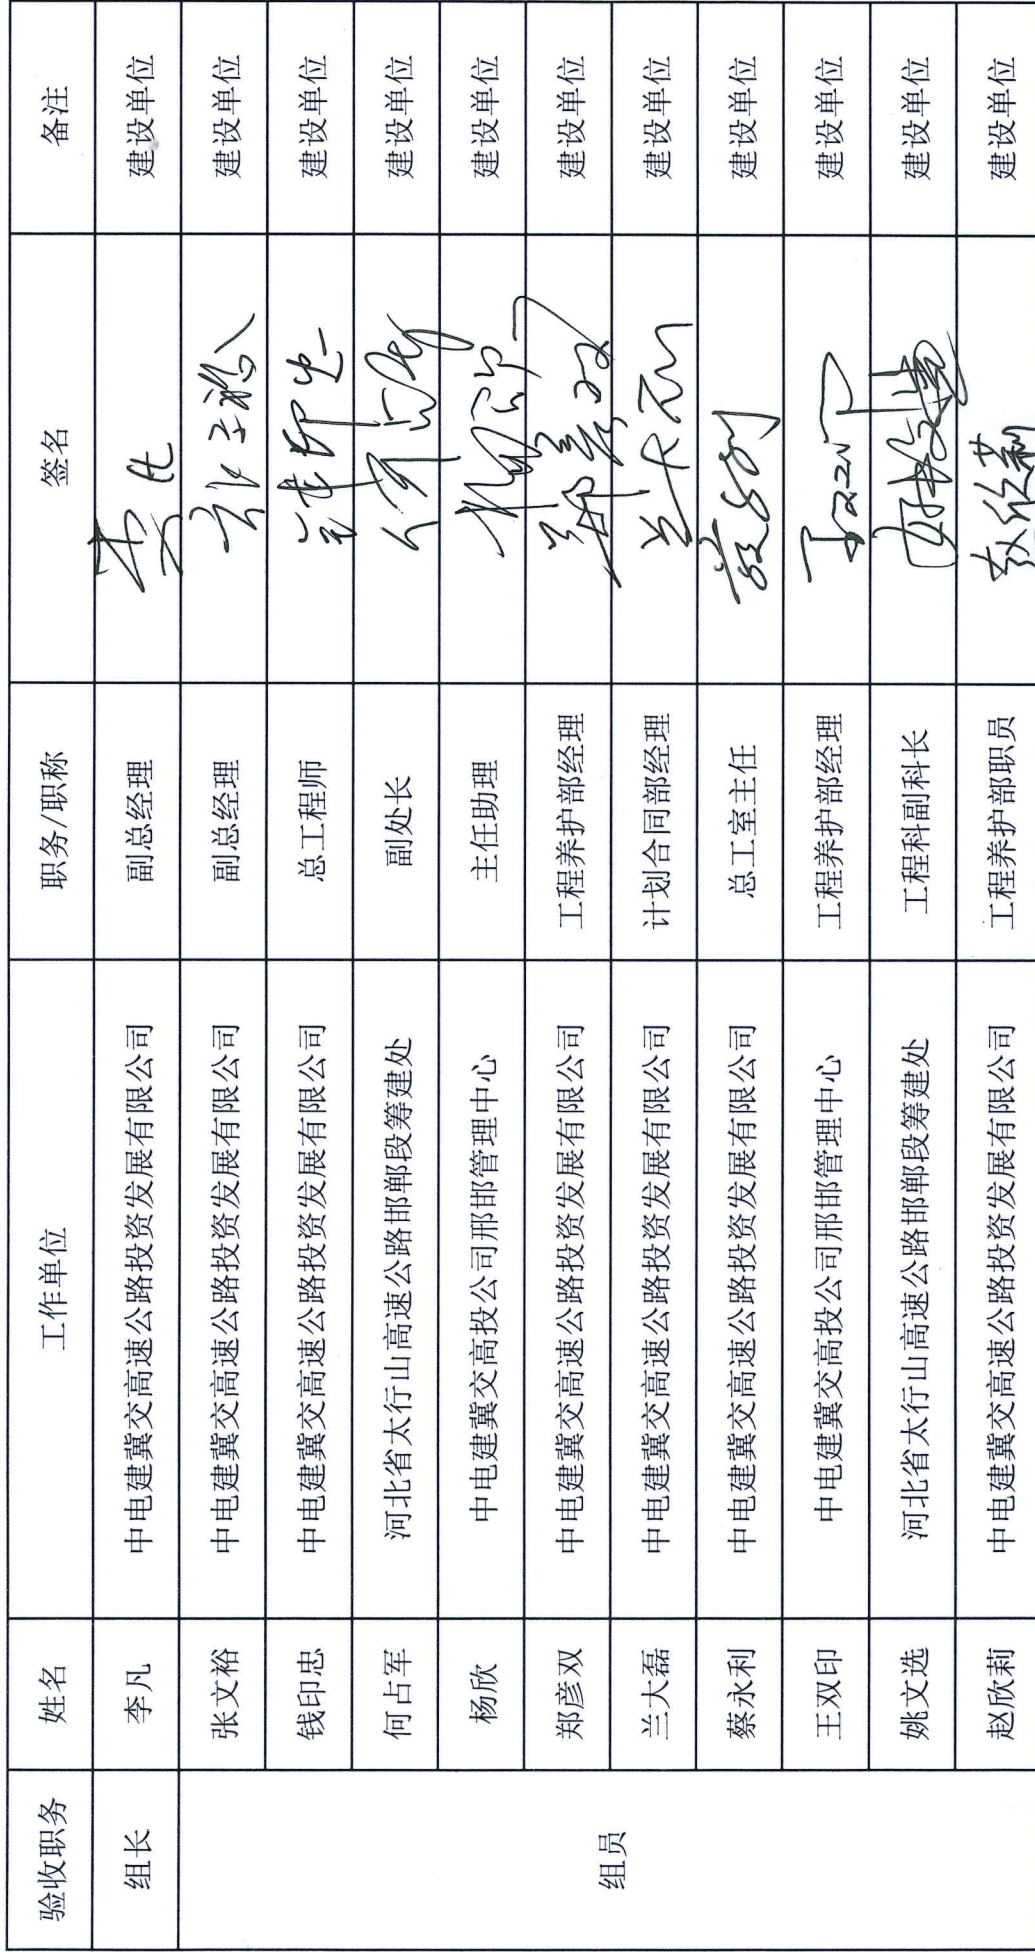 验收职务 姓名 工作单位 职务/职称 签名 备注
组长 李凡 中电建冀交高速公路投资发展有限公司 副总经理 建设单位
组员 张文裕 中电建冀交高速公路投资发展有限公司 副总经理 建设单位
钱印忠 中电建冀交高速公路投资发展有限公司 总工程师 建设单位
何占军 河北省太行山高速公路邯郸段筹建处 副处长 建设单位
杨欣 中电建冀交高投公司邢邯管理中心 主任助理 建设单位
郑彦双 中电建冀交高速公路投资发展有限公司 工程养护部经理 建设单位
兰大磊 中电建冀交高速公路投资发展有限公司 计划合同部经理 建设单位
蔡永利 中电建冀交高速公路投资发展有限公司 总工室主任 建设单位
王双印 中电建冀交高投公司邢邯管理中心 工程养护部经理 建设单位
姚文选 河北省太行山高速公路邯郸段筹建处 工程科副科长 建设单位
赵欣莉 中电建冀交高速公路投资发展有限公司 工程养护部职员 赵欣莉 建设单位